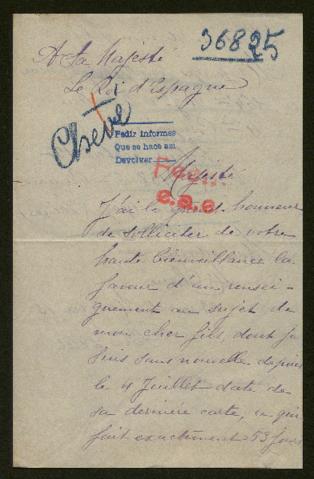 36825
A Sa Majesté
Le Roi d'Espagne
Chêve
Pedir informes
Que se hace así
Devolver
Majesté
J'ai le grand honneur
de solliciter de votre
haute bienveillance la
faveur d'un rensei-
gnement au sujet de
mon cher fils, dont je
suis sans nouvelle depuis
le 4 Juillet date de
sa dernière carte, ce qui
fait exactement 53 jours